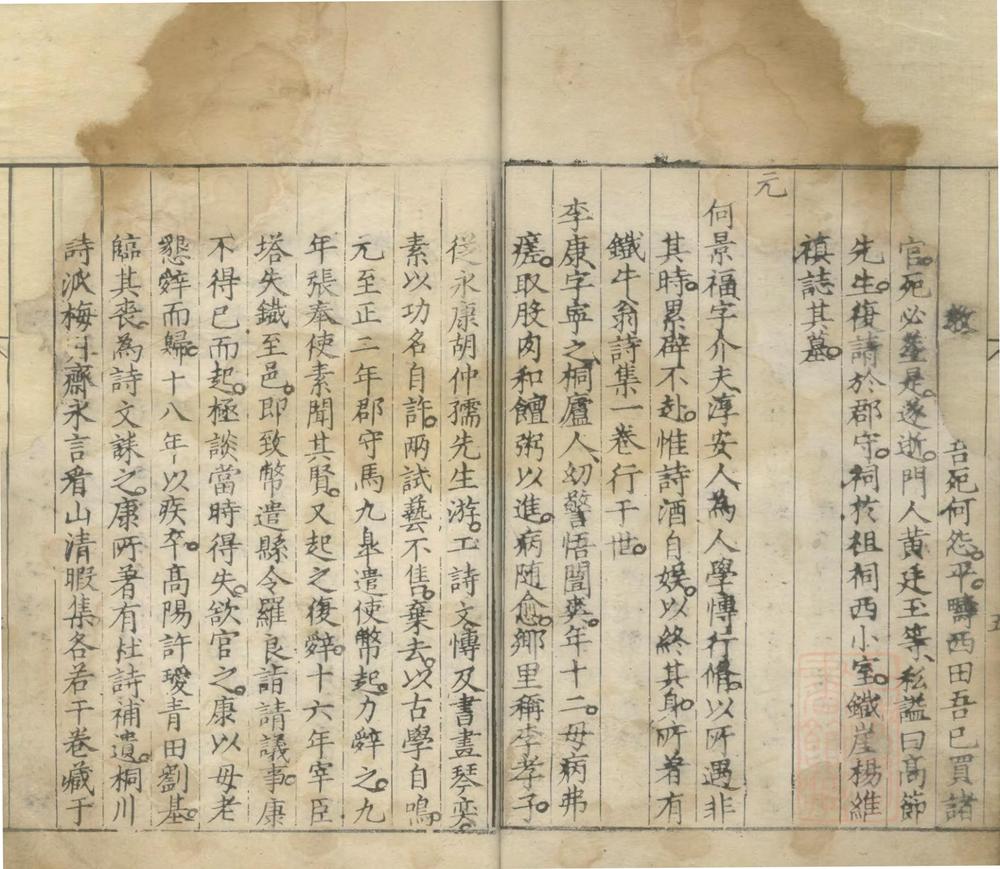 敎吾死何怨乎疇西田吾已買諸
官死必塟是遂逝門人黃廷玉等私謚曰高節
先生復請於郡守祠於祖祠西小室鐵崖楊維
禎誌其墓
元
何景福字介夫淳安人為人學慱行脩以所遇非
其時累辟不赴惟詩酒自娛以終其身所著有
鐵牛翁詩集一卷行于世
李康字寕之桐廬人幼警悟闓爽年十二母病弗
瘥取股肉和饘粥以進病随愈鄉里稱李孝子
從永康胡仲孺先生游工詩文慱及書畫琴奕
素以功名自許兩試藝不售棄去以古學自鳴
元至正三年郡守馬九臯遣使幣起力辭之九
年張奉使素聞其賢又起之復辭十六年宰臣
塔失鐵至邑即致幣遣縣令羅良詣請議事康
不得已而起極談當時得失欲官之康以母老
懇辤而歸十八年以疾卒高陽許瓊青田劉基
臨其丧為詩文誄之康所著有杜詩補遺桐川
詩派梅齋永言看山清暇集各若干卷藏于